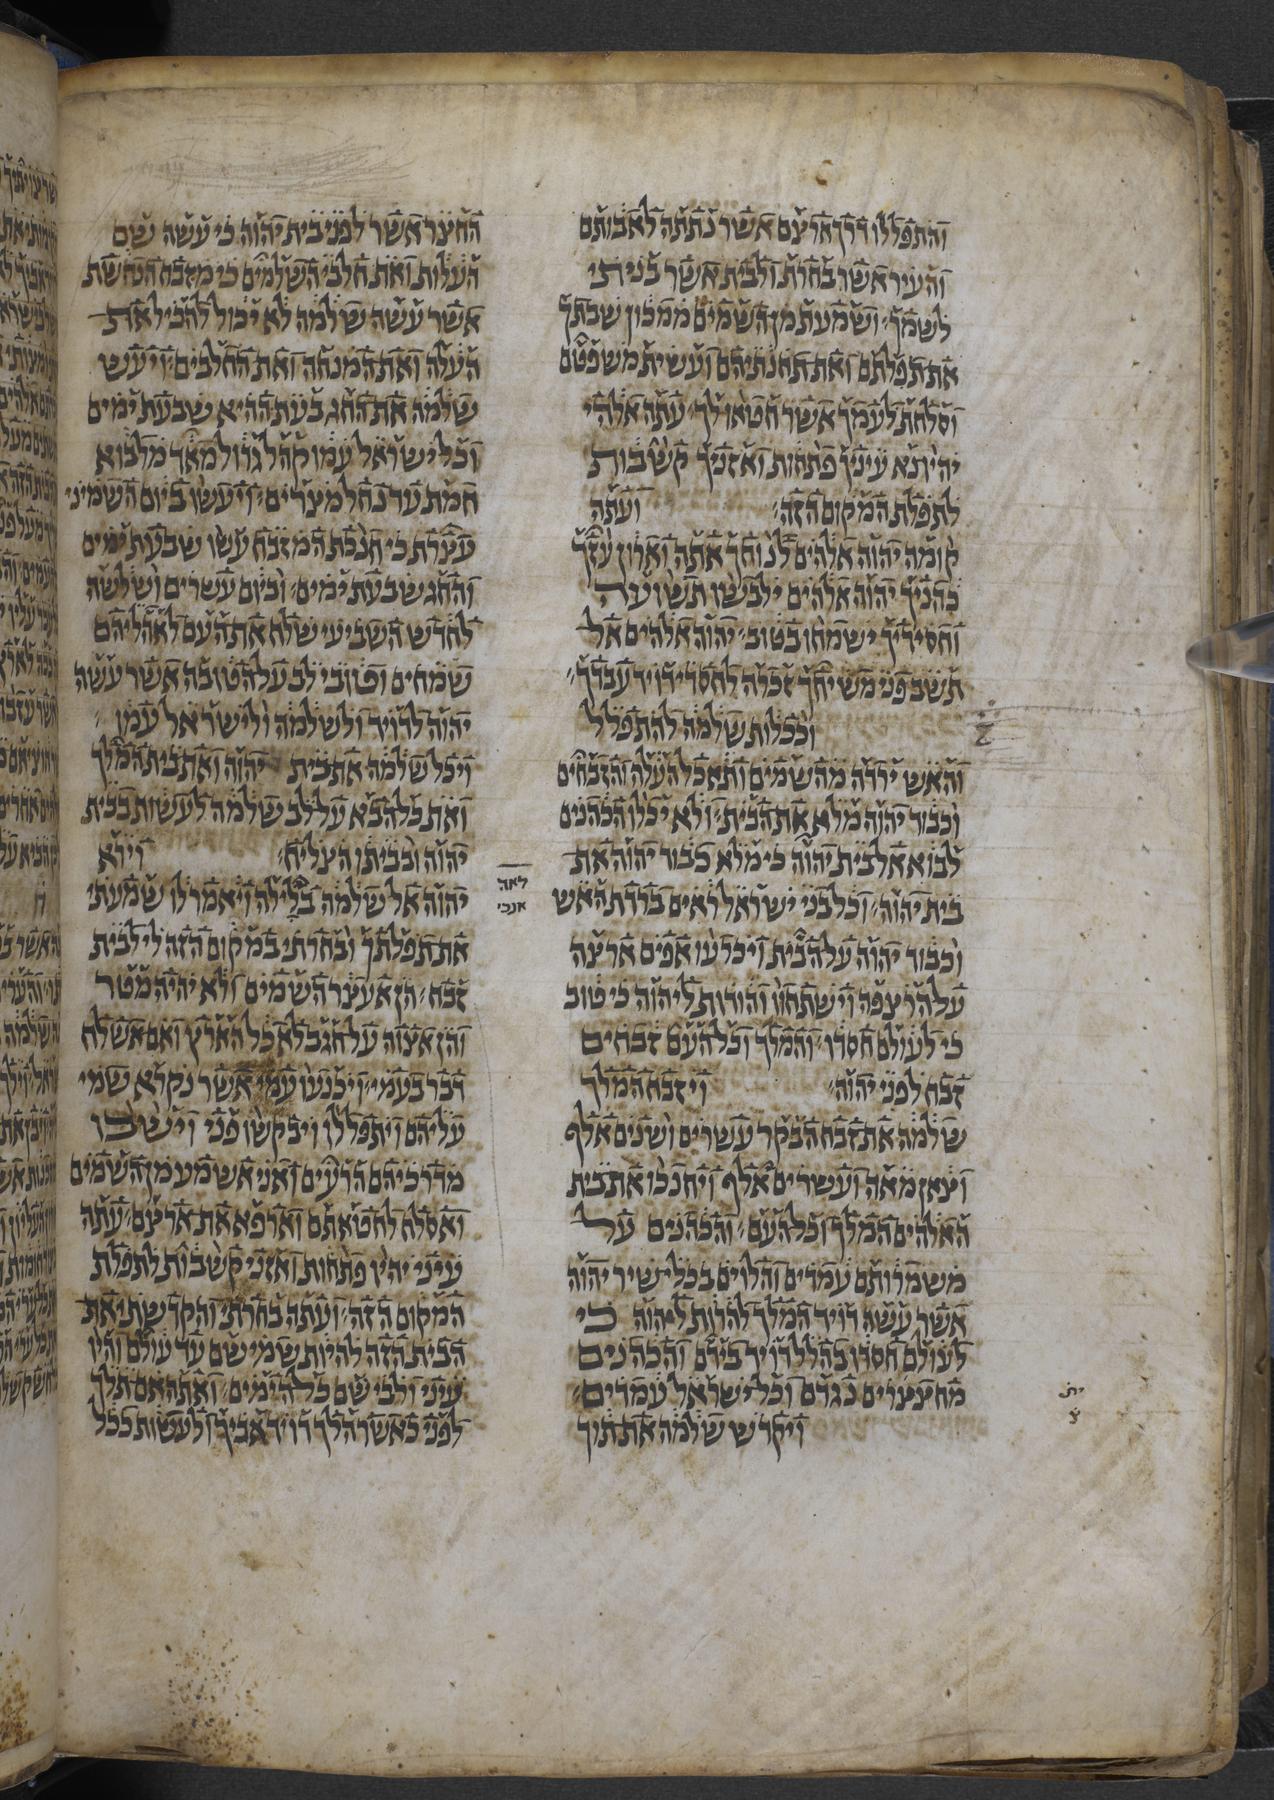 והתפללו דרך ארצם אשר נתתה לאבותם
והעיר אשר בחרת ולבית אשר בניתי
לשמך ושמעת מן השמים ממכון שבתך
את תפלתם ואת תחנתיהם ועשית משפטם
וסלחת לעמך אשר חטאו לך עתה אלהי
יהיו נא עיניך פתחות ואזניך קשבות
לתפלת המקום הזה׃ ועתה
קומה יהוה אלהים לנוחך אתה וארון עזך
כהניך יהוה אלהים ילבשו תשועה
וחסידיך ישמחו בטוב׃ יהוה אלהים אל
תשב פני משיחך זכרה לחסדי דויד עבדך׃
וככלות שלמה להתפלל
והאש ירדה מהשמים ותאכל העלה והזבחים
וכבוד יהוה מלא את הבית׃ ולא יכלו הכהנים
לבוא אל בית יהוה כי מלא כבוד יהוה את
בית יהוה׃ וכל בני ישראל ראים ברדת האש
וכבוד יהוה על הבית ויכרעו אפים ארצה
על הרצפה וישתחוו והודות ליהוה כי טוב
כי לעולם חסדו׃ והמלך וכל העם זבחים
זבח לפני יהוה׃ ויזבח המלך
שלמה את זבח הבקר עשרים ושנים אלף
וצאן מאה ועשרים אלף ויחנכו את בית
האלהים המלך וכל העם׃ והכהנים על
משמרותם עמדים והלוים בכלי שיר יהוה
אשר עשה דויד המלך להדות ליהוה כי
לעולם חסדו בהלל דויד בידם והכהנים
מחצצרים נגדם וכל ישראל עמדים׃
ויקדש שלמה את תוך
החצר אשר לפני בית יהוה כי עשה שם
העלות ואת חלבי השלמים כי מזבח הנחשת
אשר עשה שלמה לא יכול להכיל את
העלה ואת המנחה ואת החלבים׃ ויעש
שלמה את החג בעת ההיא שבעת ימים
וכל ישראל עמו קהל גדול מאד מלבוא
חמת עד נחל מצרים׃ ויעשו ביום השמיני
עצרת כי חנכת המזבח עשו שבעת ימים
והחג שבעת ימים׃ וביום עשרים ושלשה
לחדש השביעי שלח את העם לאהליהם
שמחים וטובי לב על הטובה אשר עשה
יהוה לדויד ולשלמה ולישראל עמו׃
ויכל שלמה את בית יהוה ואת בית המלך
ואת כל הבא על לב שלמה לעשות בבית
יהוה ובביתו הצליח׃ וירא
יהוה אל שלמה בלילה ויאמר לו שמעתי
את תפלתך ובחרתי במקום הזה לי לבית
זבח׃ הן אעצר השמים ולא יהיה מטר
והן אצוה על חגב לאכל הארץ ואם אשלח
דבר בעמי׃ ויכנעו עמי אשר נקרא שמי
עליהם ויתפללו ויבקשו פני וישבו
מדרכיהם הרעים ואני אשמע מן השמים
ואסלח לחטאתם וארפא את ארצם׃ עתה
עיני יהיו פתחות ואזני קשבות לתפלת
המקום הזה׃ ועתה בחרתי והקדשתי את
הבית הזה להיות שמי שם עד עולם והיו
עיני ולבי שם כל הימים׃ ואתה אם תלך
לפני כאשר הלך דויד אביך ולעשות ככל